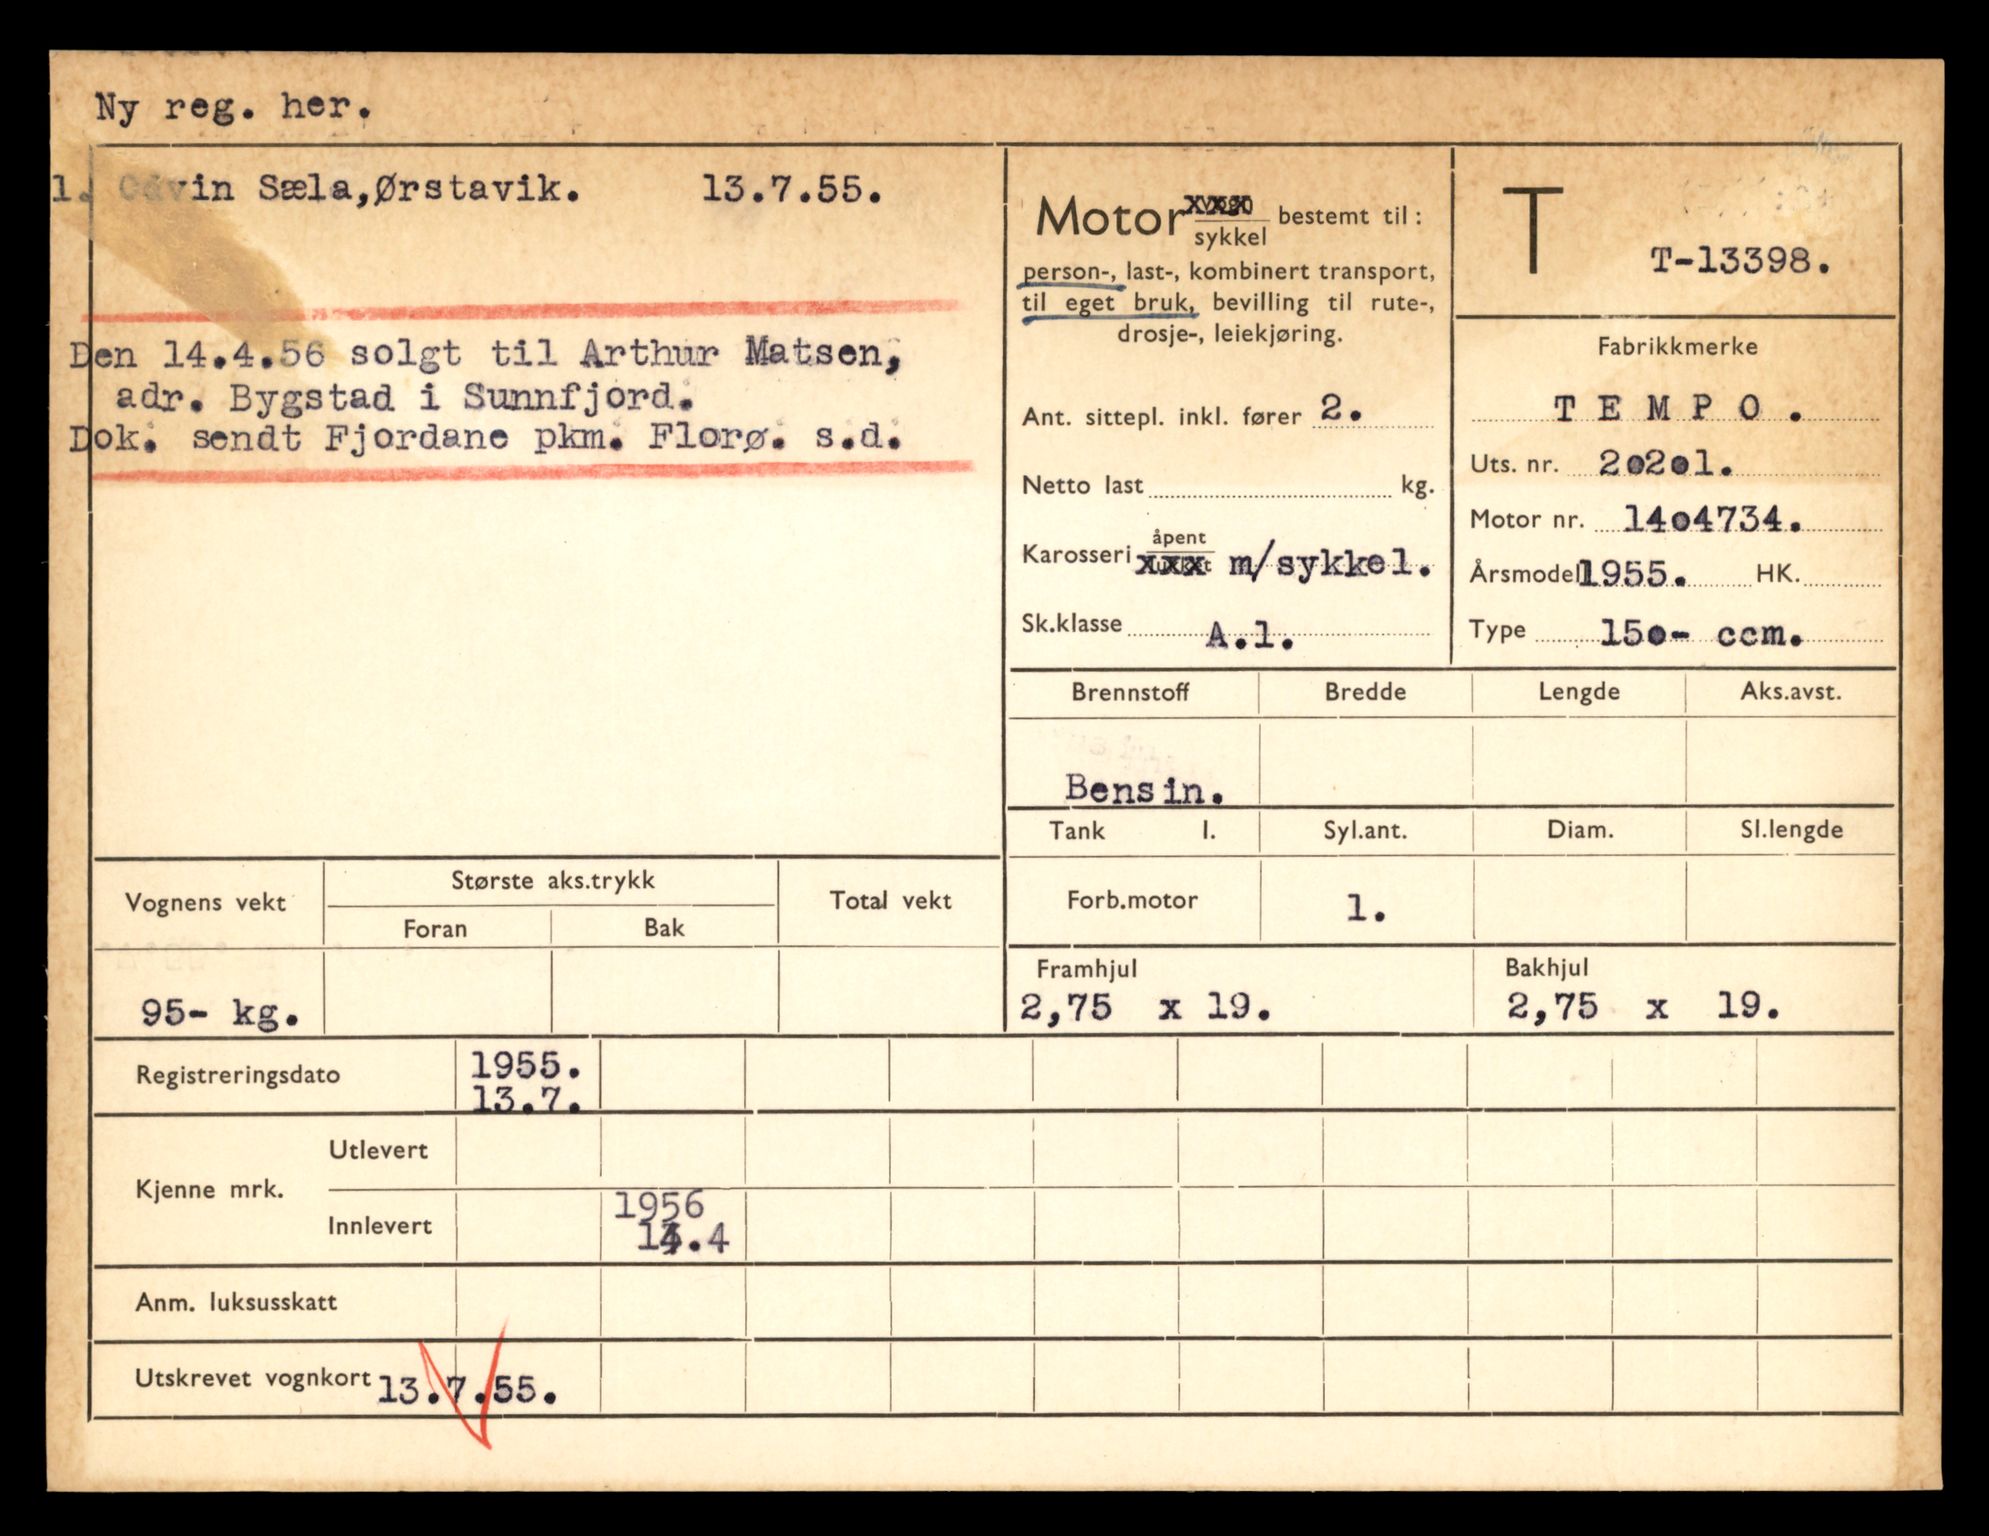 Ny reg. her.
1. Odvin Sæla,Ørstavik. 13.7.55.
Den 14.4.56 solgt til Arthur Matsen,
adr. Bygstad i Sunnfjord.
Dok. sendt Fjordane pkm. Florø. s.d.
Motor vogn bestemt til :
sykkel
person-, last-, kombinert transport,
til eget bruk, bevilling til rute-,
drosje-, leiekjøring.
Ant. sittepl. inkl. fører 2.
Netto last kg.
Karosseri åpent
lukket m/sykkel.
Sk.klasse A.1.
T
T-13398.
Fabrikkmerke
TEMPO.
Uts. nr. 20201.
Motor nr. 1404734.
Årsmodell 1955. HK.
Type 150- ccm.
Brennstoff Bredde Lengde Aks.avst.
Bensin.
Tank l. Syl.ant. Diam. Sl.lengde
Forb.motor 1.
Vognens vekt Største aks.trykk Total vekt
Foran Bak
95- kg.
Framhjul Bakhjul
2,75 x 19. 2,75 x 19.
Registreringsdato 1955.
13.7.
Kjenne mrk. Utlevert
Innlevert 1956
14.4
Anm. luksusskatt
Utskrevet vognkort 13.7.55.